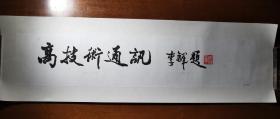 高技術通訊 李鐸題